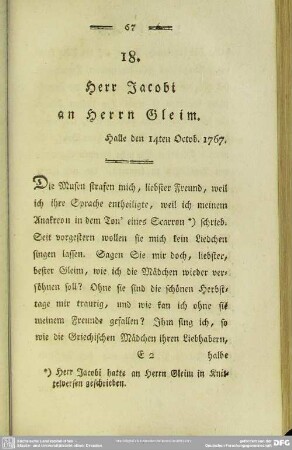 67
18.
Herr Jacobi
an Herrn Gleim.
Halle den 14ten Octob. 1767.
Die Musen strafen mich, liebster Freund, weil
ich ihre Sprache entheiligte, weil ich meinem
Anakreon in dem Ton eines Scarron *) schrieb.
Seit vorgestern wollen sie mich kein Liedchen
singen lassen. Sagen Sie mir doch, liebster,
bester Gleim, wie ich die Mädchen wieder ver-
söhnen soll? Ohne sie sind die schönen Herbst-
tage mir traurig, und wie kan ich ohne sie
meinem Freunde gefallen? Ihm sing ich, so
wie die Griechischen Mädchen ihren Liebhabern,
E 2 halbe
*) Herr Jacobi hatte an Herrn Gleim in Knit-
telversen geschrieben.